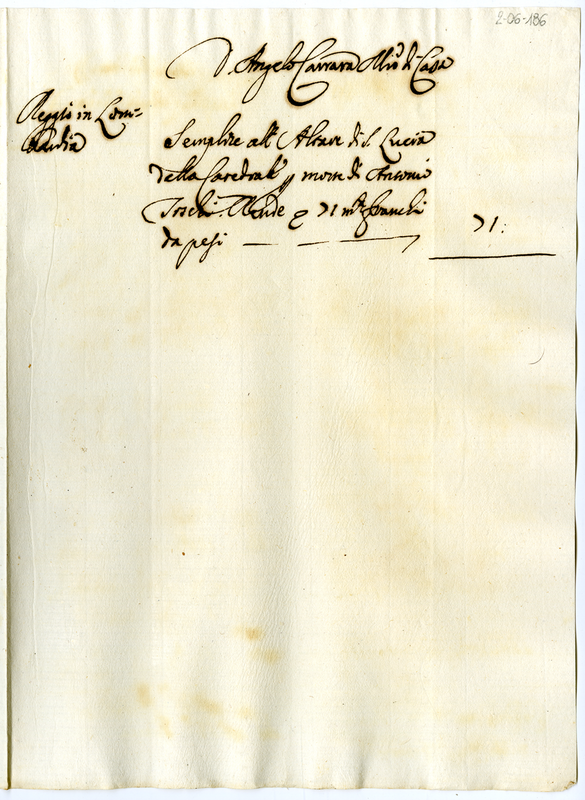 2-06-186
D. Angelo Carrara Mro di Casa
Reggio in Lom=
bardia
Semplice all' Altare di S. Lucia
della Catedrale p morte di Antonio
Toschi. Rende 71 mta franchi
da pesi
71: